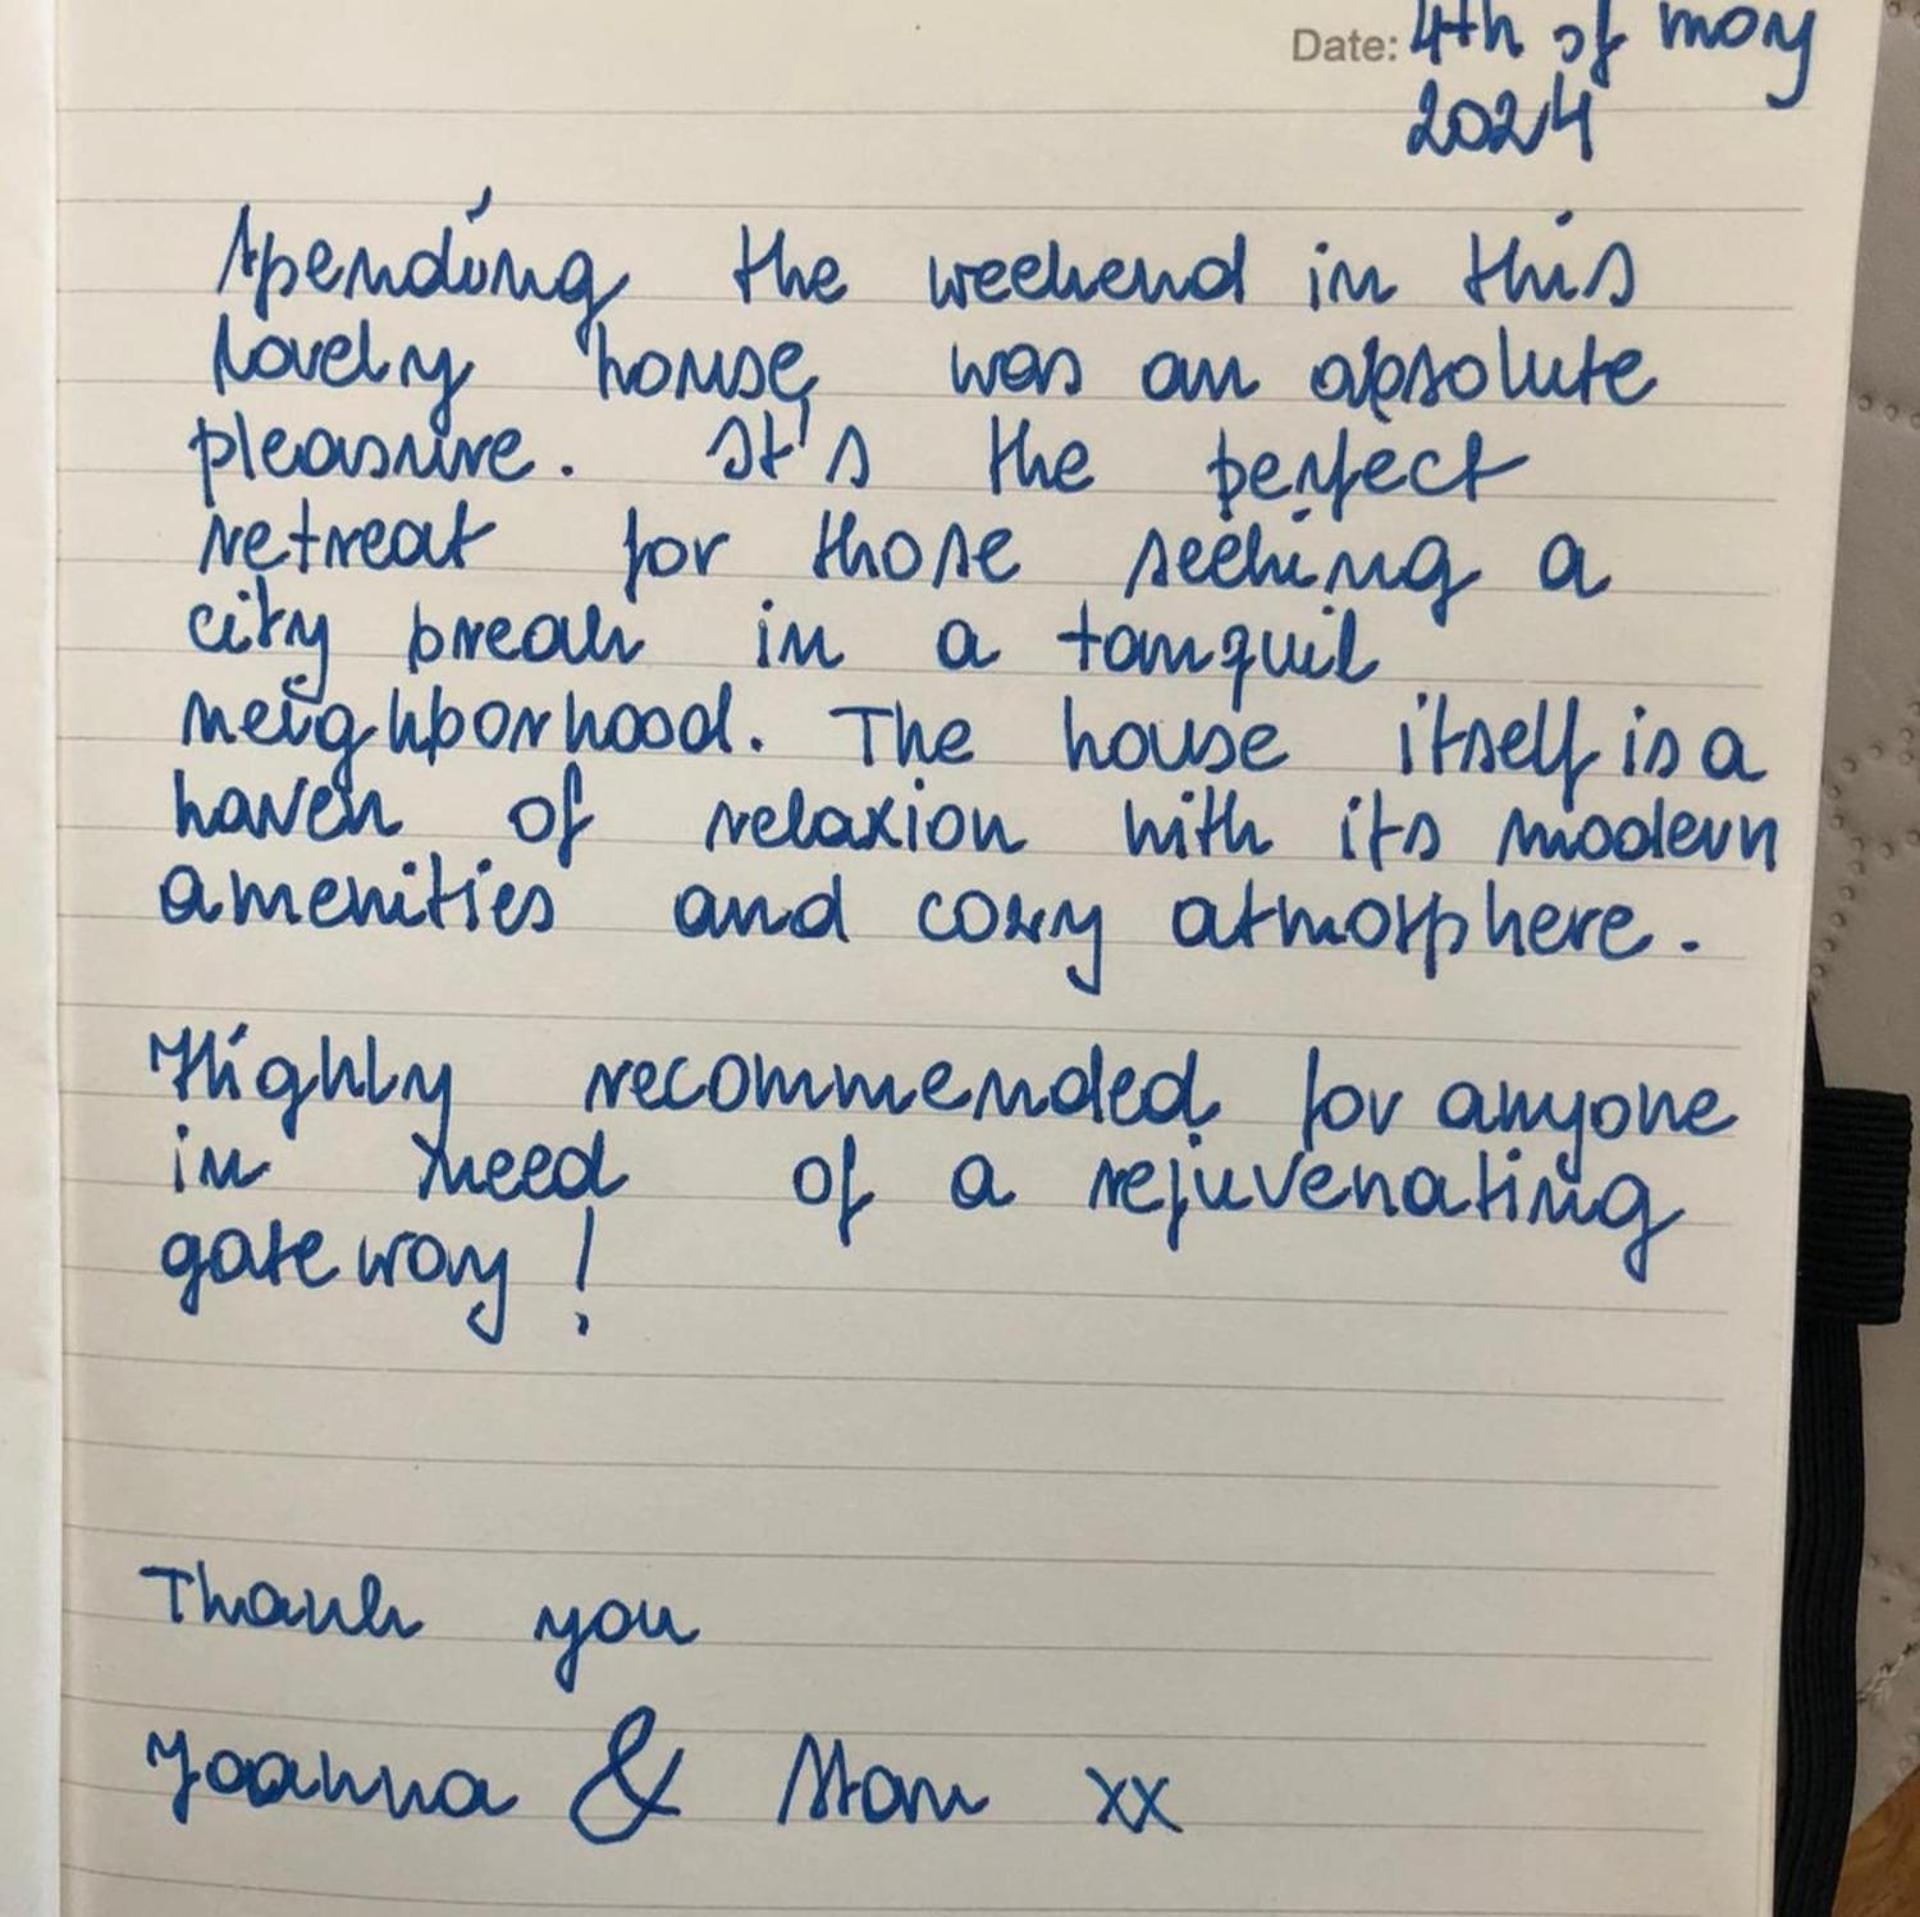 Date: 4th of may
2024
Spending the weekend in this
lovely house was an absolute
pleasure. It's the perfect
retreat for those seeking a
city break in a tanquil
neighborhood. The house itself is a
haven of relaxion with its modern
amenities and cozy atmosphere.
Highly recommended for anyone
in need of a rejuvenating
gateway!
Thank you
Joanna & Stan xx